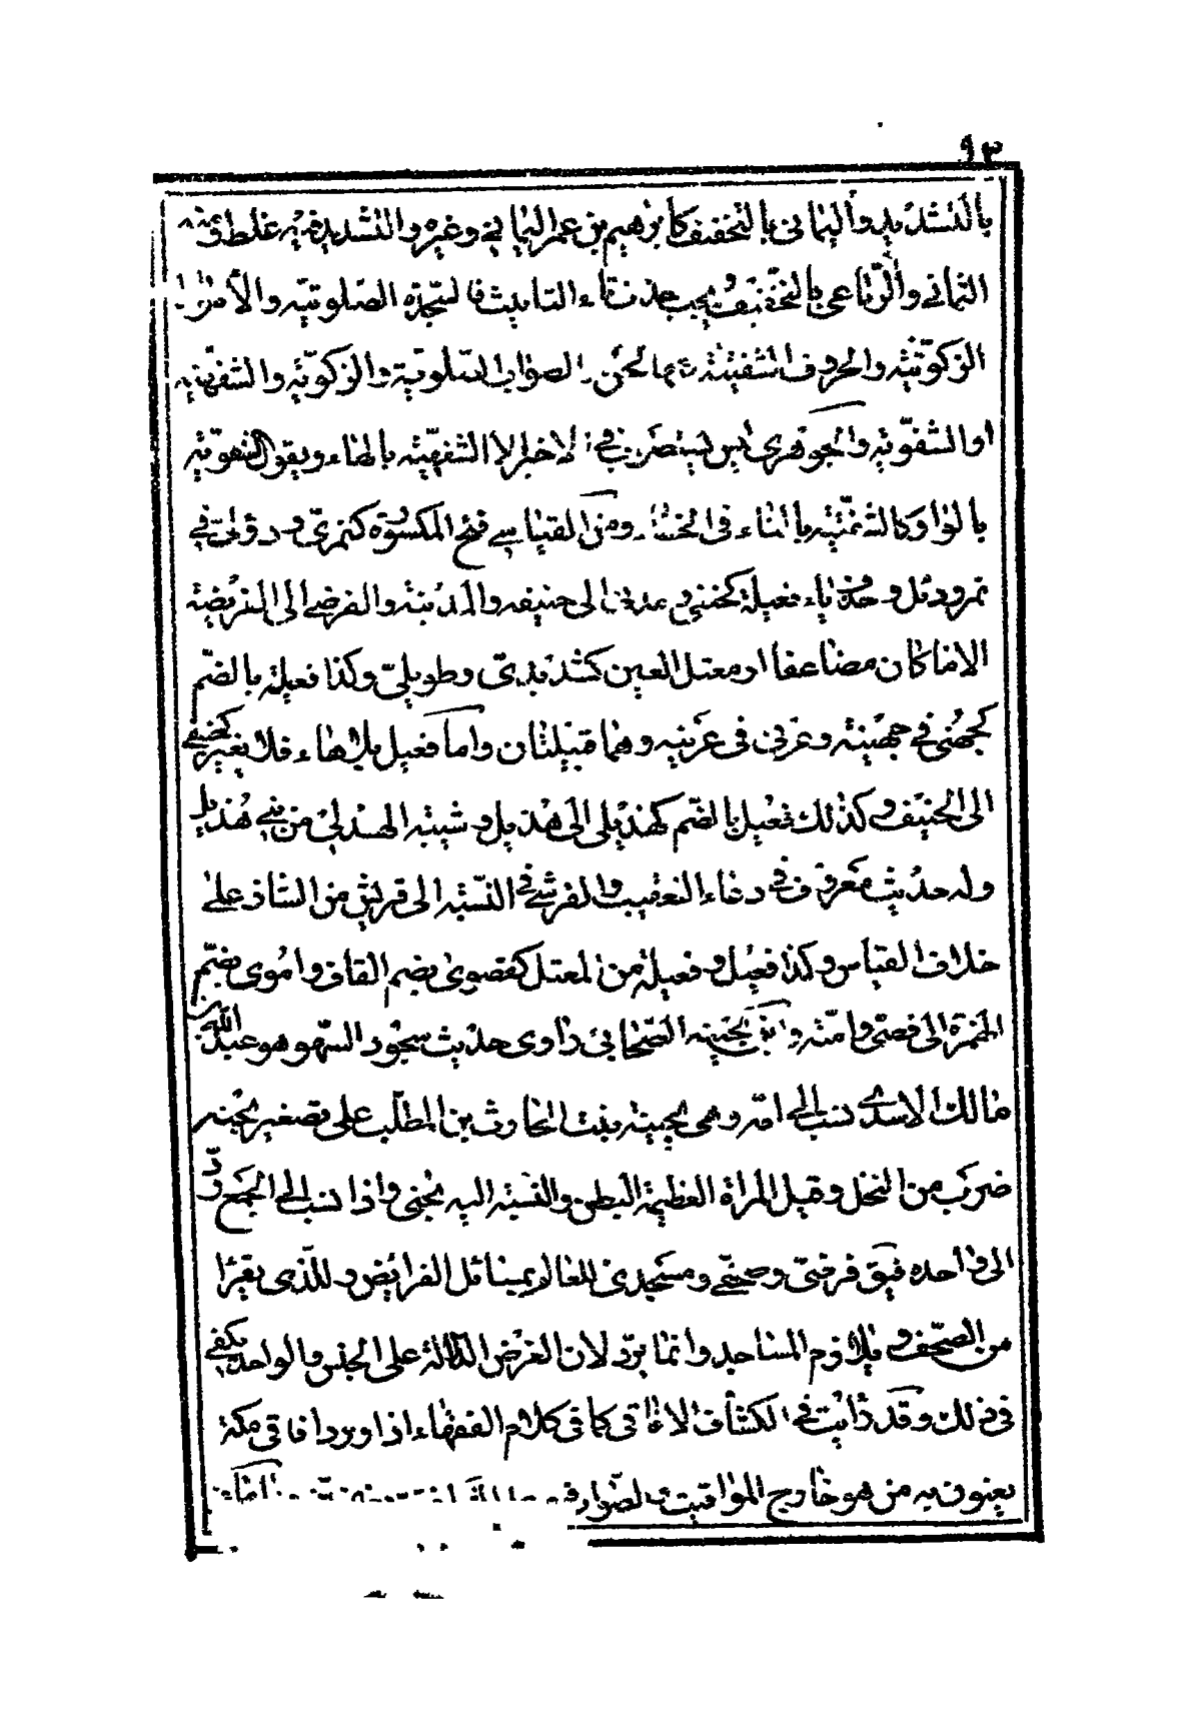 ٩٣
بالتشديد واليماني بالتخفيف كابرهيم بن عمر اليماني وغيره والتشديد فيه غلط
الثماني والرباعي بالتخفيف ويجب حذف تاء التانيث فالسجدة الصلوتيه والأموال
الزكوتيه والحروف الشفتيه لحن والصواب الصلوية والزكويه والشفهيه
او الشفويه والجوهرى ليس في الاخير الا الشفهيّه بالهاء ويقول الشفويه
بالواو كالشفتيه بالتاء في الخطاء ومن القياسي فتح المكسورة كنمريّ ودؤليّ في
نمر ودئل وحذف ياء فعيلة كحنفي ومدني الى حنيفه والمدينة والفرضي الى الفريضة
الا ما كان مضاعفا او معتل العين كشديديّ وطويليّ وكذا فعيلة بالضّم
كجهني في جهينة وعرني في عرينه وهما قبيلتان واما فعيل بلا هاء فلا يغير كحنيفي
الى الحنيف وكذلك فعيل بالضّم كهذيلي الى هذيل وشيبه الهذلي من بني هذيل
وله حديث معروف في دعاء التعقيب والقرشي في النّسبة الى قريش من الشاذ على
خلاف القياس وكذا فعيل وفعيلة من المعتل كقصوى بضم القاف واموى بضّم
الهمزة الى قصيّ واميّه وابن بحينه الصّحابي راوى حديث سجود السّهو هو عبد الله بن
مالك الاسدي نسب الى امّه وهي بحينة بنت الحارث بن المطّلب على تصغير بحنه
ضرب من النخل وقيل المراة العظيمة البطن والنسبه اليه بحني واذا نسب الى الجمع ردّ
الى واحده فيق فرضيّ وصحفيّ ومسجدي للعالم بمسائل الفرائض وللذى يقرا
من الصّحف ويلازم المساجد وانما يردّ لان الغرض الدلالة على الجنس والواحد يكفي
في ذلك وقد رايت في الكشاف الافاقي كما في كلام الفقهاء اذا ويرد افاقي مكة
يعنون به من هو خارج المواقيت والصّواب